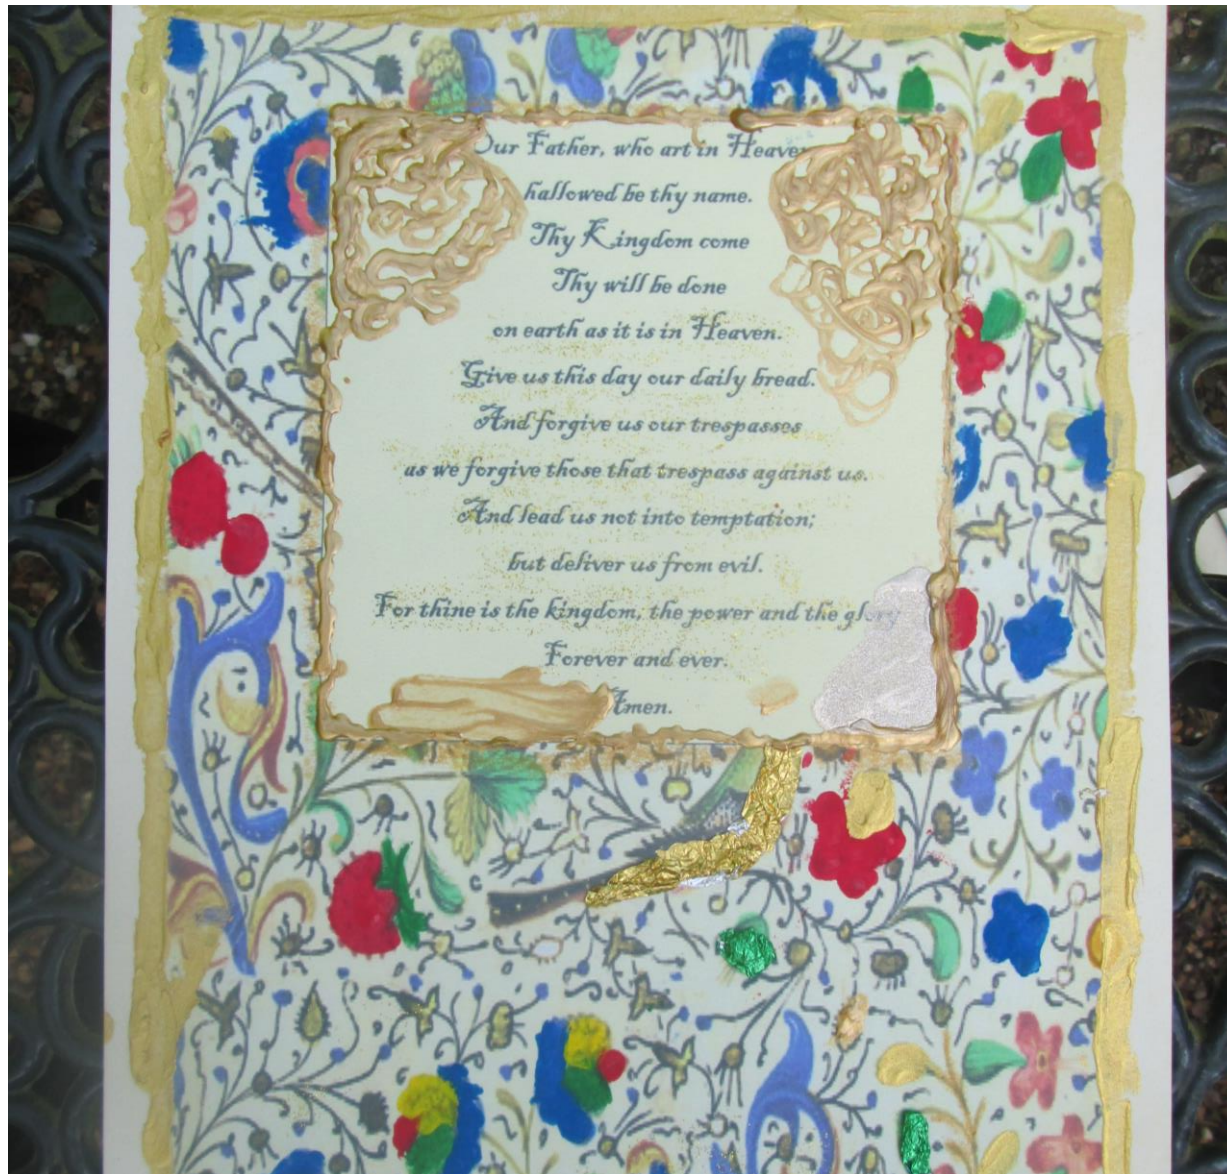 Our Father, who art in Heaven
hallowed be thy name.
Thy Kingdom come
Thy will be done
on earth as it is in Heaven.
Give us this day our daily bread.
And forgive us our trespasses
as we forgive those that trespass against us.
And lead us not into temptation;
but deliver us from evil.
For thine is the kingdom, the power and the glory
Forever and ever.
Amen.